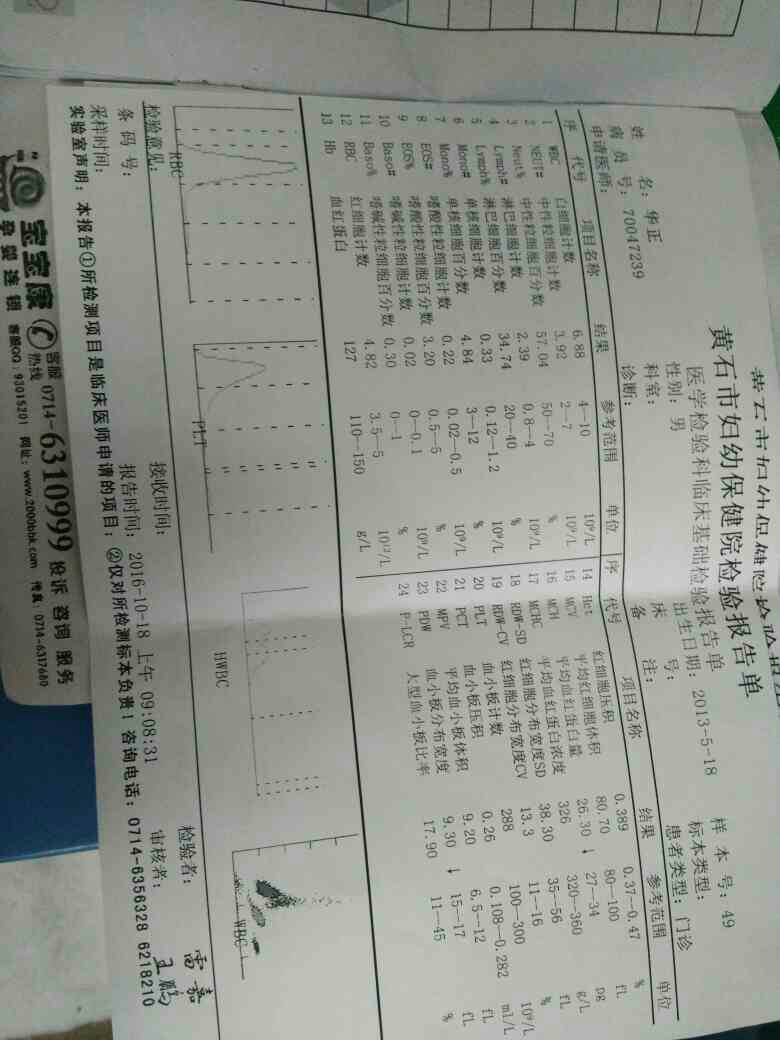 黄石市妇幼保健院检验报告单
黄石市妇幼保健院检验报告单
医学检验科临床基础检验报告单
姓 名: 华正
性别: 男
出生日期: 2013-5-18
样 本 号: 49
病 员 号: 70047239
科室:
床 号:
标本类型:
申请医师:
诊断:
备 注:
患者类型: 门诊
序 代号 项目名称 结果 参考范围 单位 序 代号 项目名称 结果 参考范围 单位
1 WBC 白细胞计数 6.88 4--10 10⁹/L 14 Hct 红细胞压积 0.389 0.37--0.47 %
2 NEUT# 中性粒细胞计数 3.92 2--7 10⁹/L 15 MCV 平均红细胞体积 80.70 80--100 fL
3 Neut% 中性粒细胞百分数 57.04 50--70 % 16 MCH 平均血红蛋白量 26.30 ↓ 27--34 pg
4 Lymph# 淋巴细胞百分数 2.39 0.8--4 10⁹/L 17 MCHC 平均血红蛋白浓度 326 320--360 g/L
5 Lymph% 淋巴细胞计数 34.74 20--40 % 18 RDW-SD 红细胞分布宽度SD 38.30 35--56 fL
6 Mono# 单核细胞百分数 0.33 0.12--1.2 10⁹/L 19 RDW-CV 红细胞分布宽度CV 13.3 11--16 %
7 Mono% 单核细胞计数 4.84 3--12 % 20 PLT 血小板计数 288 100--300 10⁹/L
8 EOS# 嗜酸性粒细胞百分数 0.22 0.02--0.5 10⁹/L 21 PCT 血小板压积 0.26 0.108--0.282 ml/L
9 EOS% 嗜酸性粒细胞计数 3.20 0.5--5 % 22 MPV 平均血小板体积 9.20 6.5--12 fL
10 Baso# 嗜碱性粒细胞计数 0.02 0--0.1 10⁹/L 23 PDW 血小板分布宽度 9.30 ↓ 15--17 fL
11 Baso% 嗜碱性粒细胞百分数 0.30 0--1 % 24 P-LCR 大型血小板比率 17.90 11--45 %
12 RBC 红细胞计数 4.82 3.5--5 10¹²/L
13 Hb 血红蛋白 127 110--150 g/L
RBC
PLT
HWBC
WBC
检验意见:
条 码 号:
接收时间:
检验者: 雷嘉
采样时间:
报告时间: 2016-10-18 上午 09:08:31
审核者: 王鹏
实验室声明: 本报告①所检测项目是临床医师申请的项目; ②仅对所检测标本负责! 咨询电话: 0714-6356328 6218210
宝宝康
孕婴连锁
客服热线 0714-6310999 投诉 咨询 服务
客服QQ: 93015201 网址: www.2000bbk.com 传真: 0714-6317680